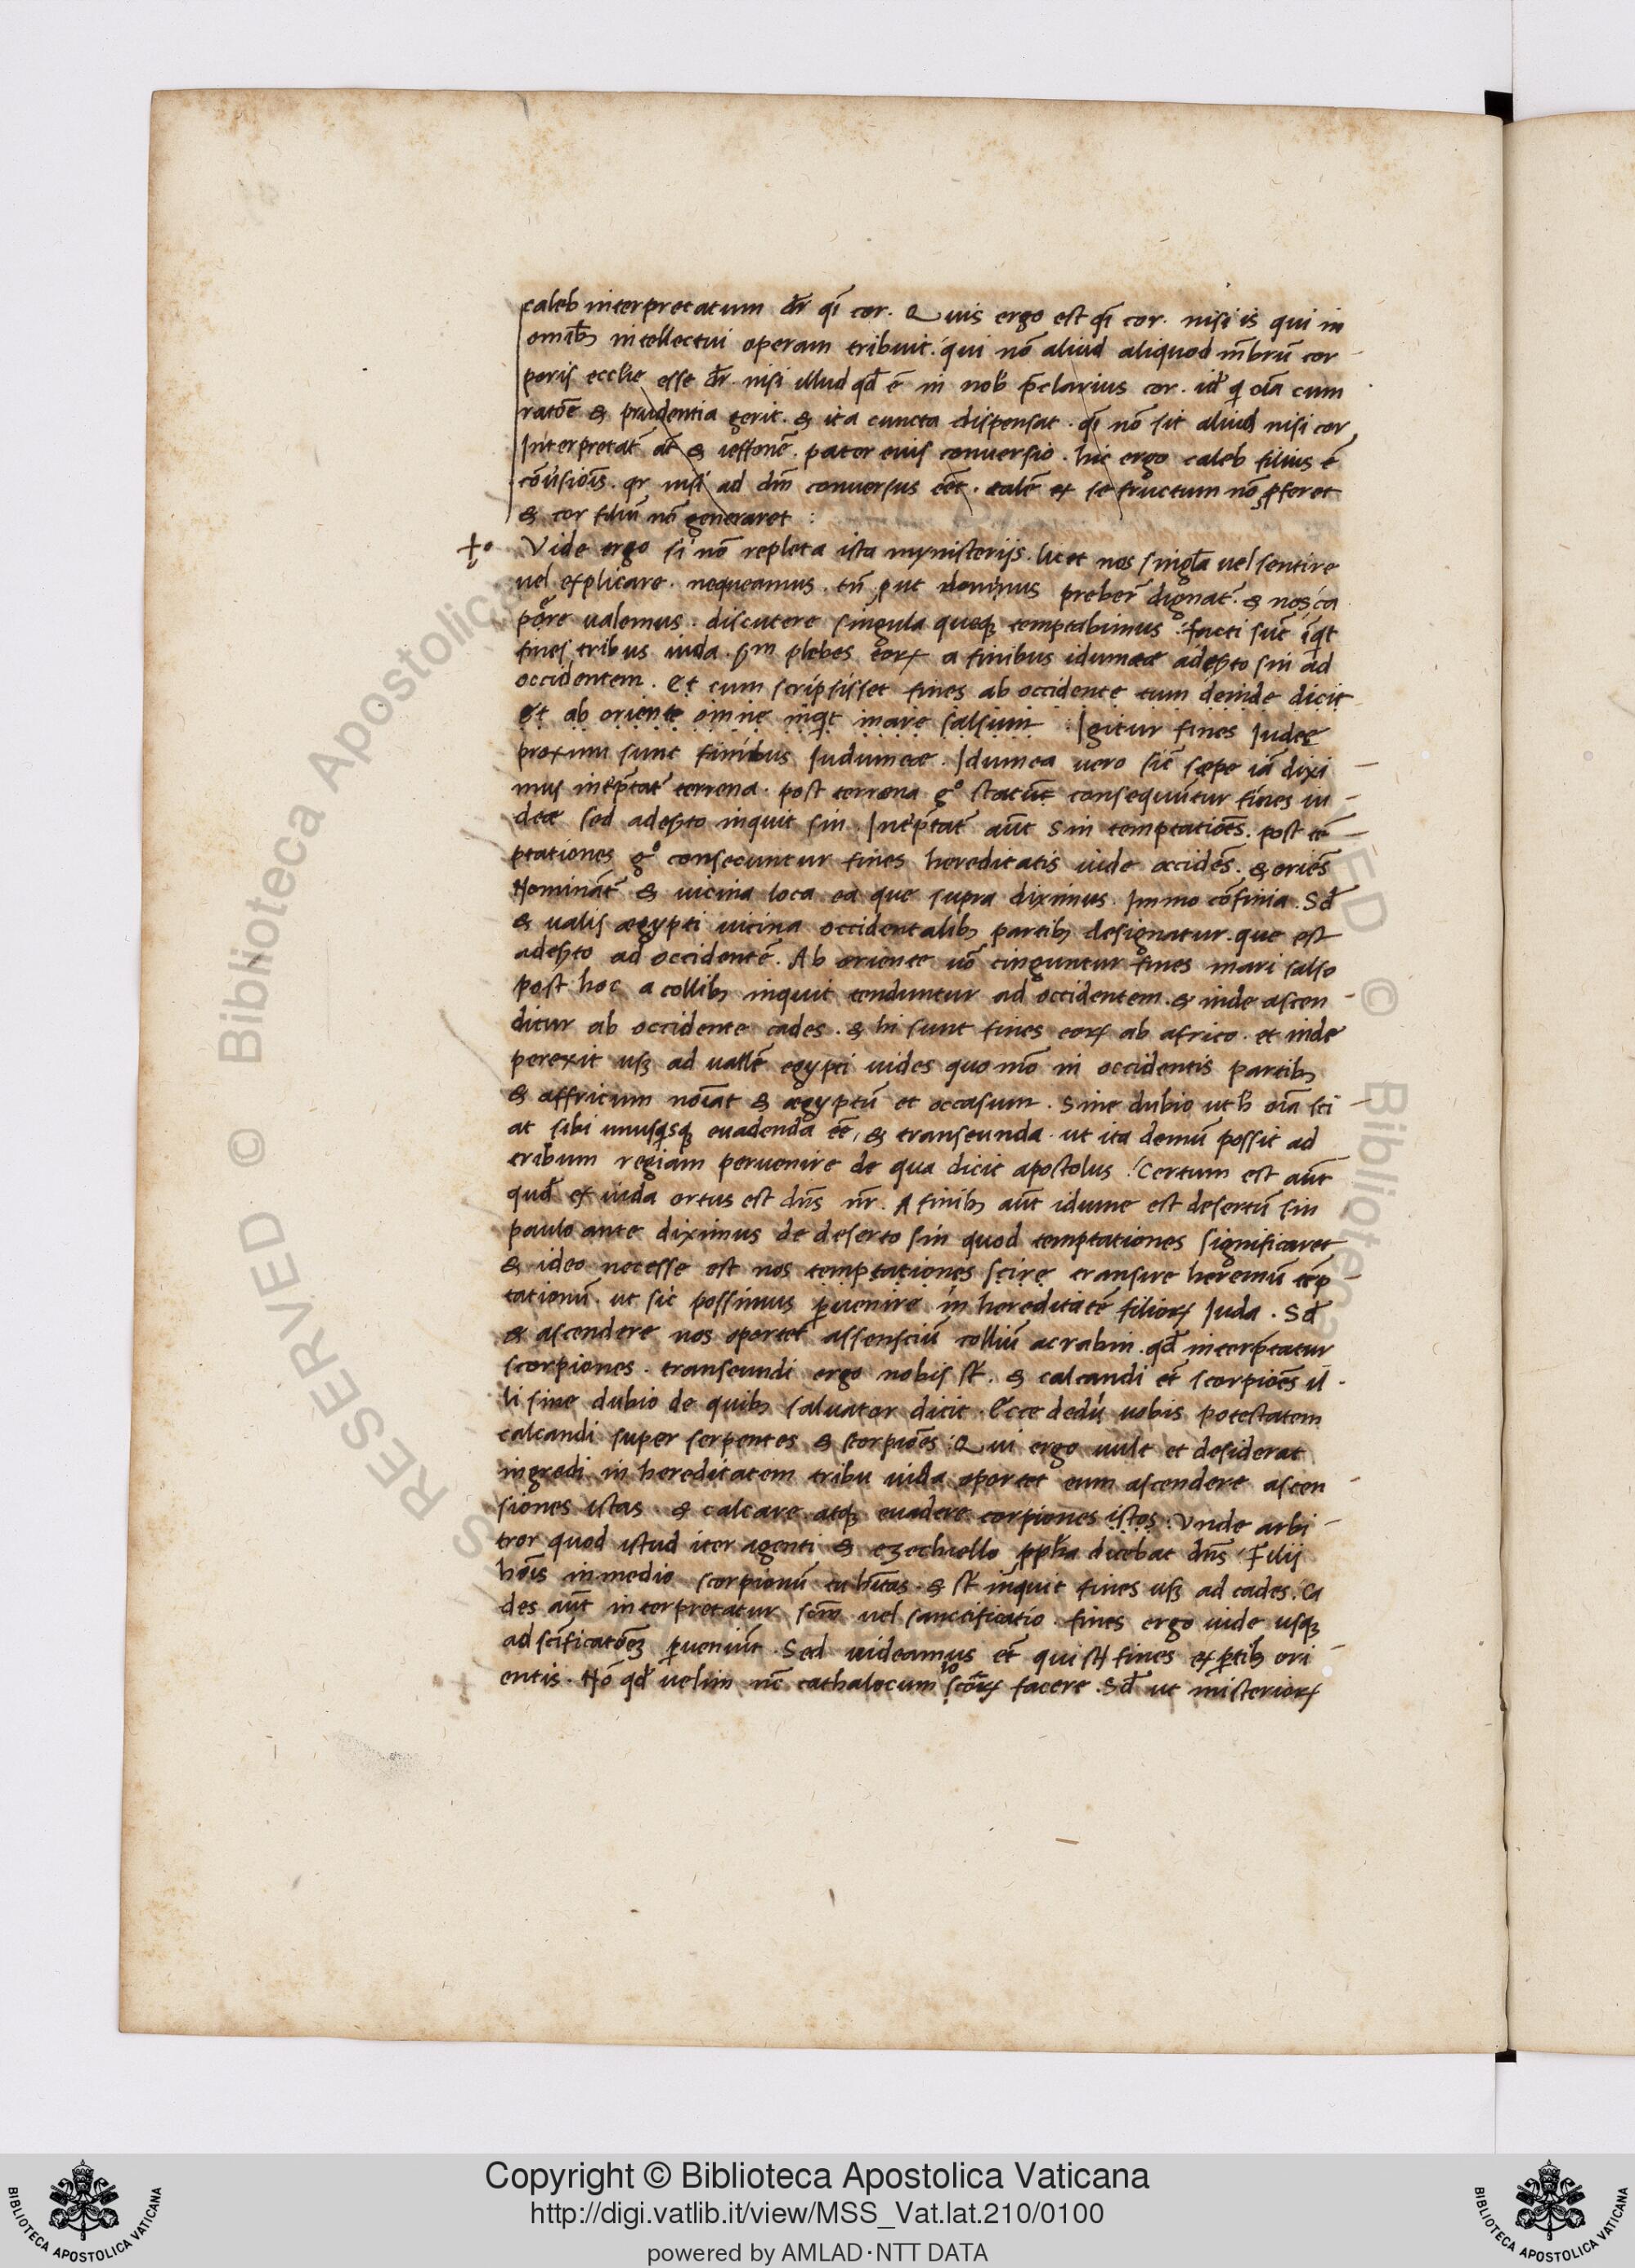 caleb interpretatum dr̄ qī cor. Quis ergo est qī cor. nisi is qui in
omib; intellectui operam tribuit. qui nō aliud aliquod mēbrū cor
poris ecclīe esse dr̄. nisi illud qd̄ ē in nob̄ p̄clarius cor. id ē q̄ oīa cum
ratōe & prudentia gerit. & ita cuncta dispensat. qī nō sit aliud nisi cor
Interpretat̄ at̄ & ieffonē. pater eius conuersio. hic ergo caleb filius ē
cōuersiōis. qr nisi ad dm̄ conuersus eēt. talē ex se fructum nō ꝓferet
& cor filiū nō generaret :
Vide ergo si nō repleta ista mynisterijs. licet nos singl̄a uel sentire
uel explicare. nequeamus. tn̄ ꝓut dominus preber̄ dignat̄. & nos ca
pe̅re ualemus. discutere singula queq; temptabimus. facti sūt īqt
fines tribus iuda. ẜm plebes eoꝝ a finibus idumeæ adeẜto sin ad
occidentem. Et cum scripsisset fines ab occidente tum deinde dicit
Et ab oriente omne inqt mare salsum : Igitur fines Iudeę
proxumi sunt finibus Iudumeæ. Idumea uero sic̄ sæpe iā dixi
mus int̄p̄tat̄ terrena. post terrena gº statūt consequuntur fines iu
deæ sed adeẜto inquit sin. Int̄p̄tat̄ aūt Sin temptatiōes. post tē
ptationes gº consecuntur fines hereditatis uide occidēs. & oriēs
Nominat̄ & uicina loca ea que supra diximus. Immo cōfinia. Sd̄
& ualis ægypti uicina occidentalib; partib; designatur. que est
adeẜto ad occidentē. Ab oriente uō cinguntur fines mari salso
post hoc a collib; inquit tenduntur ad occidentem. & inde ascen
ditur ab occidente cades. & hi sunt fines eoꝝ ab africo. et inde
perexit usq; ad vallē egypti uides quo mō in occidentis partib;
& affricum noīat & ægyptū et occasum. Sine dubio ut h̄ oīa sci
at sibi unusqsq; euadenda eē, & transeunda. ut ita demū possit ad
tribum regiam peruenire de qua dicit apostolus! Certum est aūt
qud̄ ex iuda ortus est dn̄s nr̄. A finib; aūt idume est desertū sin
paulo ante diximus de deserto sin quod temptationes significaret
& ideo necesse est nos temptationes scire transire heremū tēp
tationū. ut sic possimus ꝑuenire in hereditatē filioꝝ Iuda. Sd̄
& ascendere nos oportet assensciū colliū acrabin. qd̄ interp̄tatur
scorpiones. transeundi ergo nobis st̄. & calcandi et̄ scorpiōes il
li sine dubio de quib; saluator dicit. Ecce dedi uobis potestatem
calcandi super serpentes & scorpiōes : Qui ergo uult et desiderat
ingredi in hereditatem tribu iuda oportet eum ascendere ascen
siones istas. & calcare atq; euadere corpiones istos : Vnde arbi
tror quod istud iter agenti & ezechiello ꝓpha dicebat dn̄s Filij
hoīs in medio scorpionū tu h̄itas. & st̄ inquit fines usq; ad cades. Ca
des aūt interpretatur scm̄ uel sanctificatio. fines ergo uide usq;
ad scificatōez ꝑueniūt. Sed uideamus et̄ qui sn̄t fines ex ꝑtib; ori
entis. Nō qd̄ uelim nc̄ cathalocum locoꝝ facere. Sd̄ ut misterioꝝ
Copyright © Biblioteca Apostolica Vaticana
http://digi.vatlib.it/view/MSS_Vat.lat.210/0100
powered by AMLAD·NTT DATA